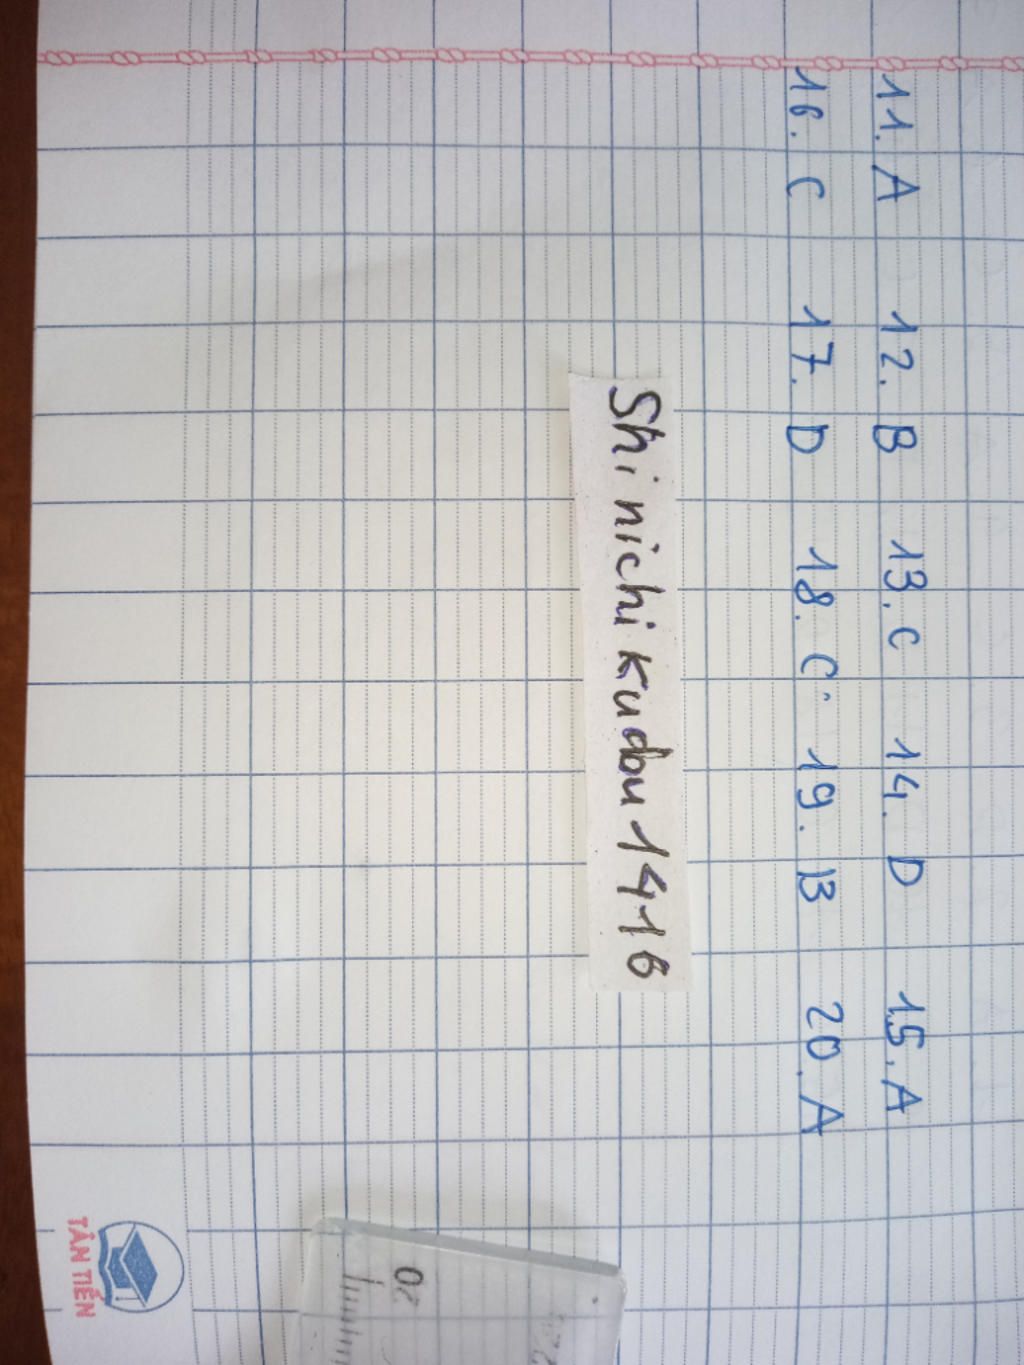 11. A 12. B 13. C 14. D 15. A
16. C 17. D 18. C 19. B 20. A
Shinichikudou1416
TÂN TIẾN
20